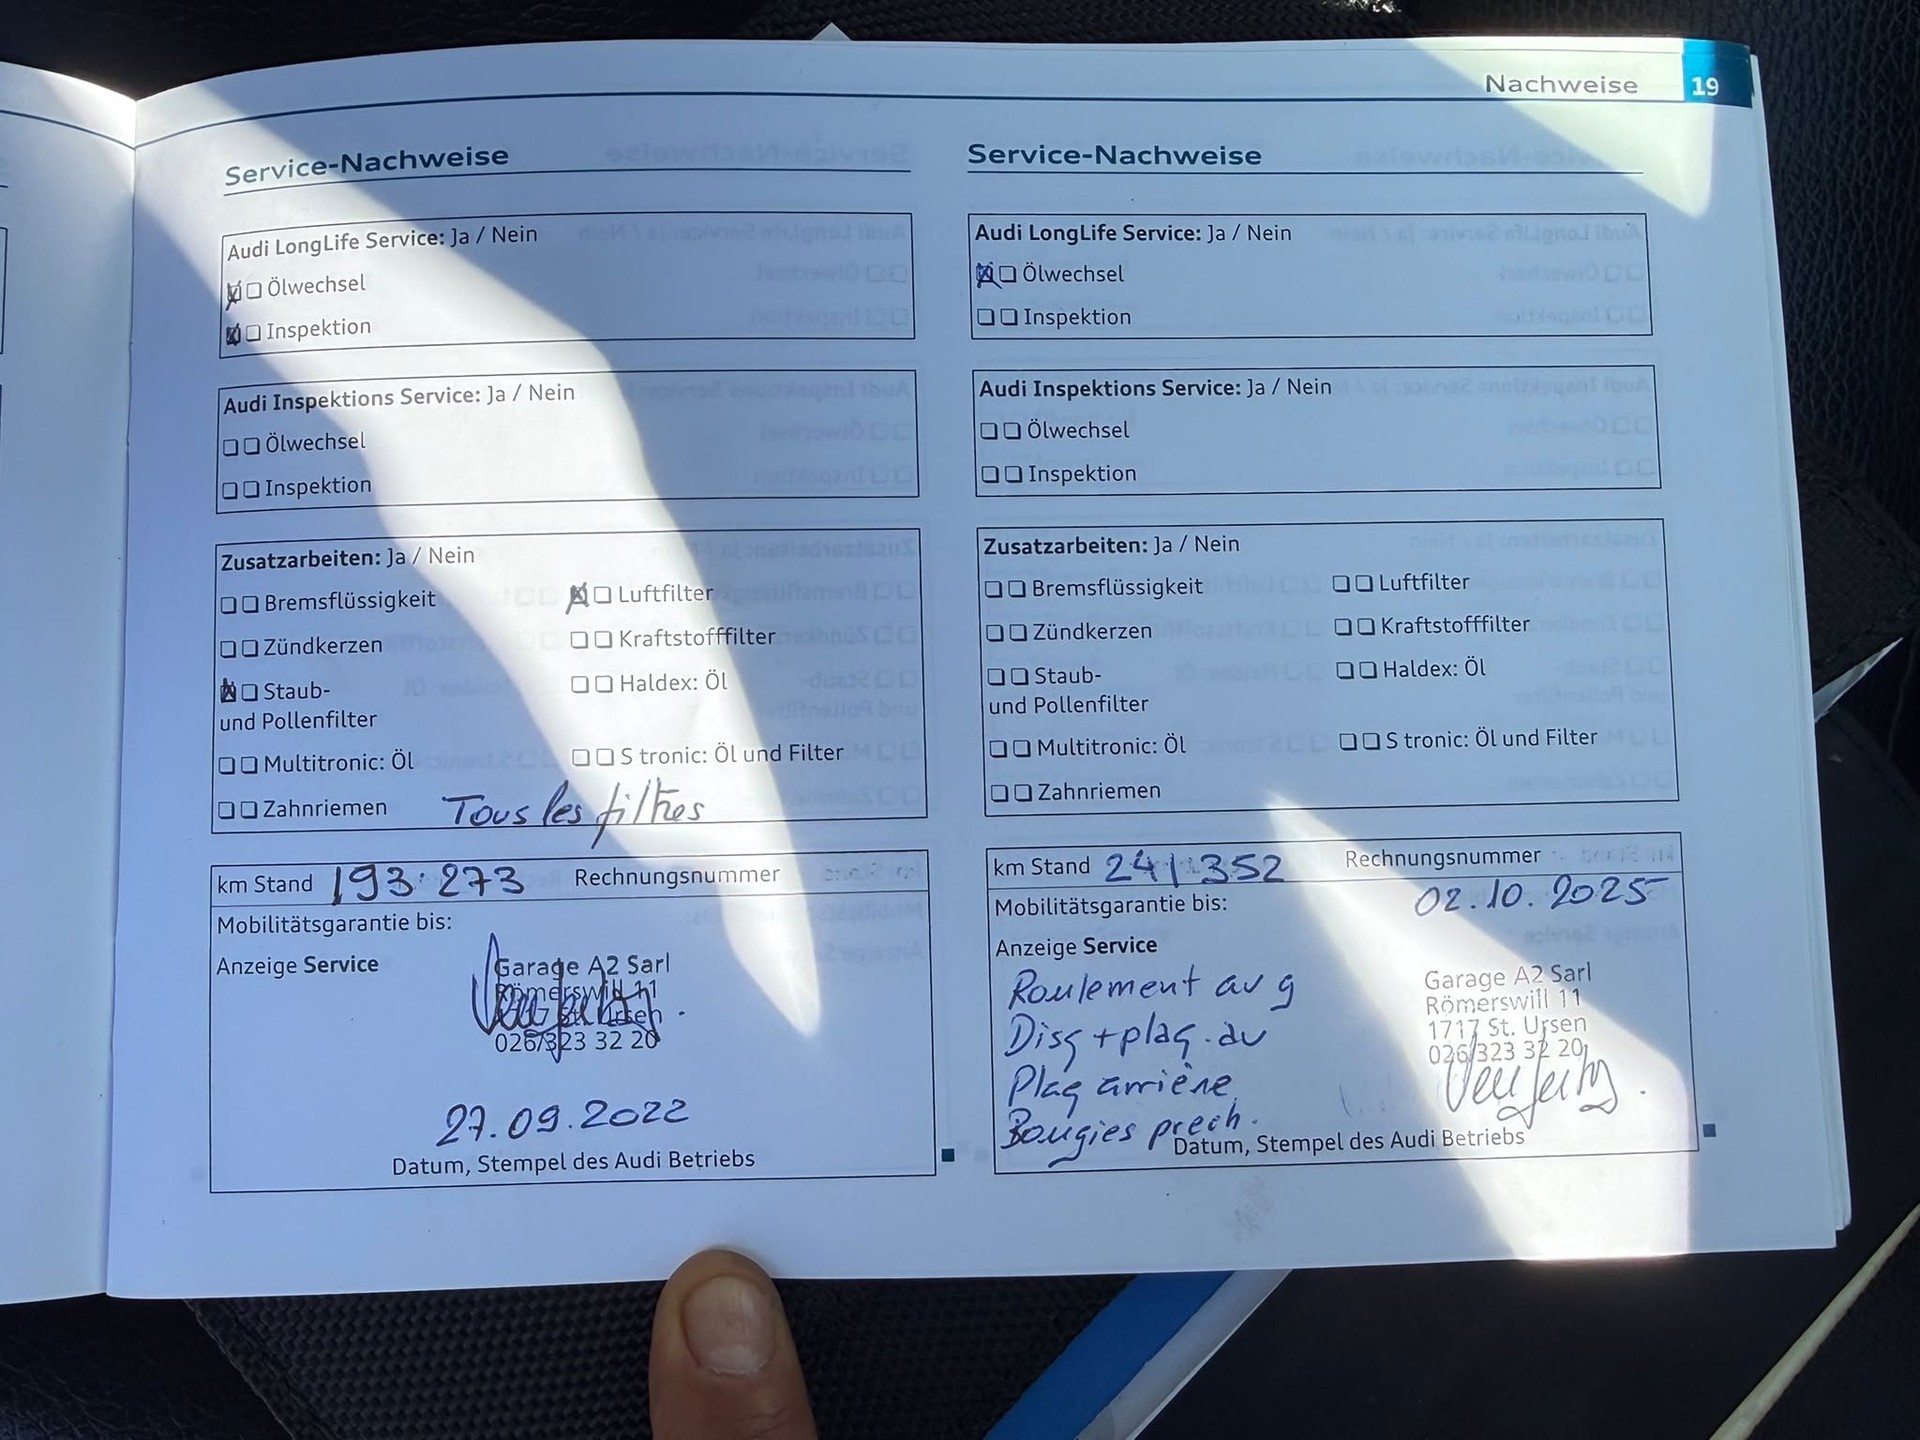 Nachweise 19
Service-Nachweise
Audi LongLife Service: Ja / Nein
Ölwechsel
Inspektion
Audi Inspektions Service: Ja / Nein
Ölwechsel
Inspektion
Zusatzarbeiten: Ja / Nein
Bremsflüssigkeit
Luftfilter
Zündkerzen
Kraftstofffilter
Staub-
und Pollenfilter
Haldex: Öl
Multitronic: Öl
S tronic: Öl und Filter
Zahnriemen
Tous les filtres
km Stand 193.273 Rechnungsnummer
Mobilitätsgarantie bis:
Anzeige Service
Garage A2 Sarl
Römerswill 11
1717 St. Ursen
026/323 32 20
27.09.2022
Datum, Stempel des Audi Betriebs
Service-Nachweise
Audi LongLife Service: Ja / Nein
Ölwechsel
Inspektion
Audi Inspektions Service: Ja / Nein
Ölwechsel
Inspektion
Zusatzarbeiten: Ja / Nein
Bremsflüssigkeit
Luftfilter
Zündkerzen
Kraftstofffilter
Staub-
und Pollenfilter
Haldex: Öl
Multitronic: Öl
S tronic: Öl und Filter
Zahnriemen
km Stand 241352 Rechnungsnummer
02.10.2025
Mobilitätsgarantie bis:
Anzeige Service
Roulement av g
Disq + plaq. av
Plaq arrière
Bougies prech.
Garage A2 Sarl
Römerswill 11
1717 St. Ursen
026/323 32 20
Datum, Stempel des Audi Betriebs